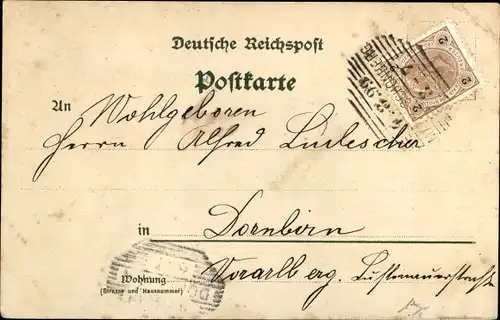 Deutsche Reichspost
Postkarte
An Wohlgeboren
Herrn Alfred Ludescher
in Dornbirn
Wohnung
(Strasse und Hausnummer)
Vorarlberg. Lustenauerstrasse
2 2